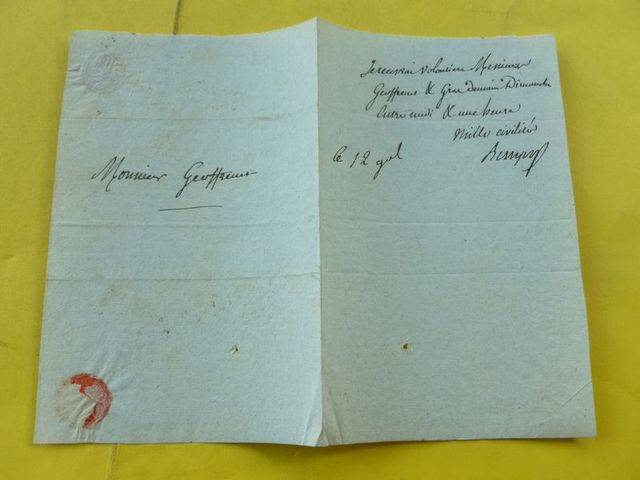 Monsieur Geoffrenet
Je recevrai volontiers Messieurs
Geoffrenet & Gras demain Dimanche
entre midi & une heure
mille civilités
le 12 gal